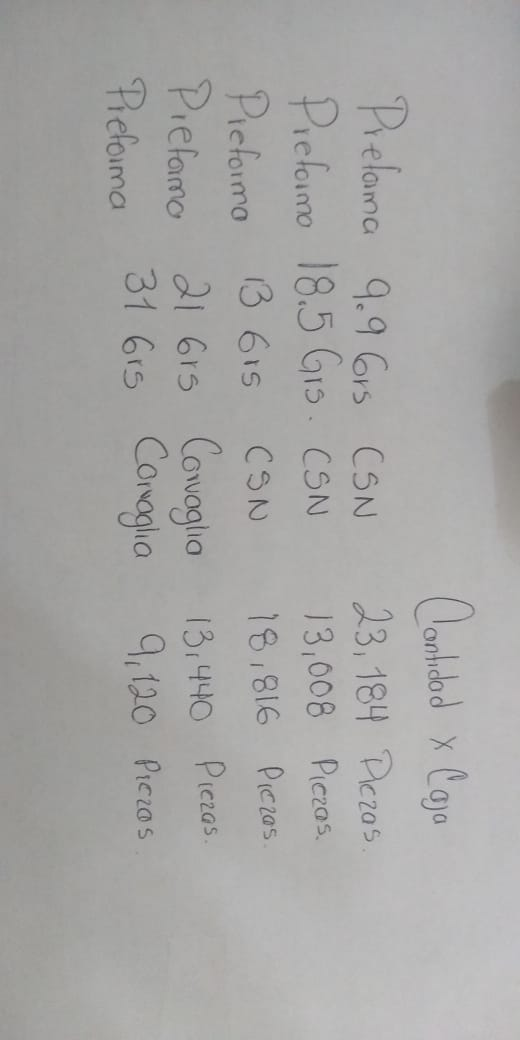 Cantidad x Caja
Preforma 9.9 Grs CSN 23,184 Piezas.
Preforma 18.5 Grs. CSN 13,008 Piezas.
Preforma 13 Grs CSN 18,816 Piezas.
Preforma 21 Grs Corvaglia 13,440 Piezas.
Preforma 31 Grs Corvaglia 9,120 Piezas.